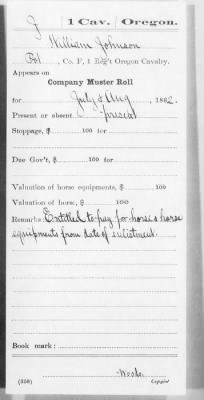 J | 1 Cav. | Oregon.
William Johnson
Pvt, Co. F, 1 Reg't Oregon Cavalry.
Appears on
Company Muster Roll
for July & Aug, 1862.
Present or absent present
Stoppage, $ 100 for
Due Gov't, $ 100 for
Valuation of horse equipments, $ 100
Valuation of horse, $ 100
Remarks: Entitled to pay for horse & horse
equipments from date of enlistment.
Book mark:
Woods
(358) Copyist.